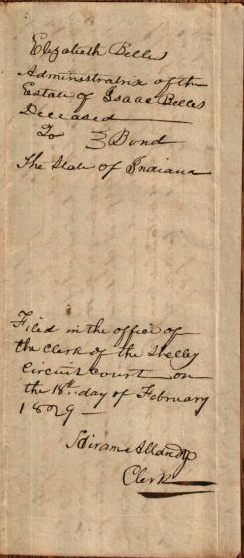 Elizabeth Belles
Administratrix of the
Estate of Isaac Belles
Deceased
To } Bond
The State of Indiana
Filed in the office of
the Clerk of the Shelby
Circuit Court on
the 18th day of February
1829
Hiram Alldredge
Clerk